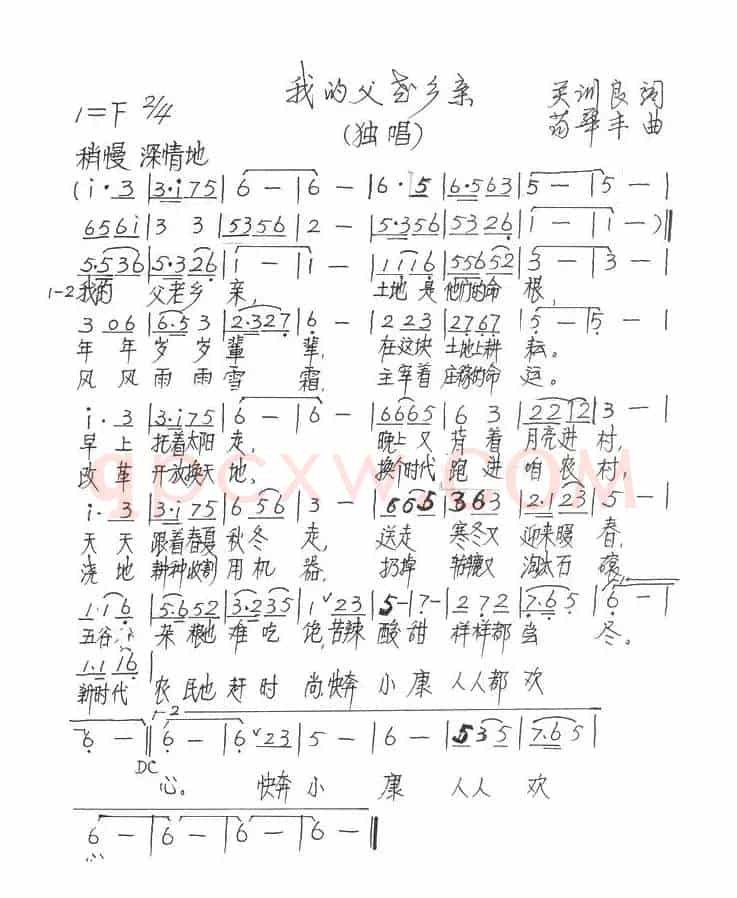 我的父老乡亲
(独唱)
1=F 2/4
训良词
荀华丰曲
稍慢 深情地
(i·3|3·i75|6-|6-|6·5|6·563|5-|5-|
656i|33|5356|2-|5·356|5326|1-|1-)‖
5·536|5·326|1-|1-|1116|55652|3-|3-|
1-2我的 父老乡亲, 土地是他们的命根,
306|6·53|2·327|6-|223|2767|5-|5-|
年年岁岁辈辈, 在这块土地上耕耘。
风风雨雨雪霜, 主宰着庄稼的命运。
i·3|3·i75|6-|6-|6665|63|2212|3-|
早上托着太阳走, 晚上又背着月亮进村,
改革开放换天地, 换个时代跑进咱农村,
qpcxw.COM
i·3|3·i75|656|3-|665|363|2·123|5-|
天天跟着春夏秋冬走, 送走寒冬又迎来暖春,
浇地耕种收割用机器, 扔掉轱辘又淘汰石磙
1·16|5·652|3·235|1∨23|5-|7-|272|7·65|6-|
五谷杂粮也难吃饱,苦辣酸甜样样都当冬。
1·116|
新时代农民也赶时尚快奔小康人人都欢
1-2
6-‖6-|6∨23|5-|6-|535|7·65|
DC
心。 快奔小康人人欢
6-|6-|6-|6-‖
心